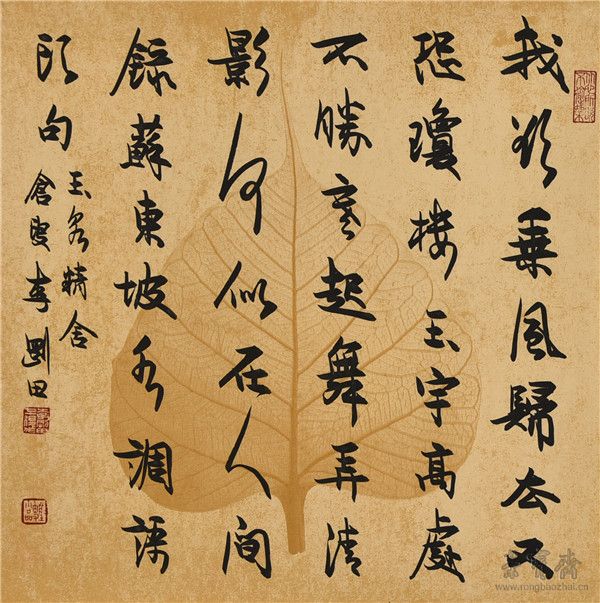 我欲乘風歸去又
恐瓊樓玉宇高處
不勝寒起舞弄清
影何似在人間
錄蘇東坡水調謌
頭句
玉泉精舍
倉叟李剛田
榮寶齋
www.rongbaozhai.cn